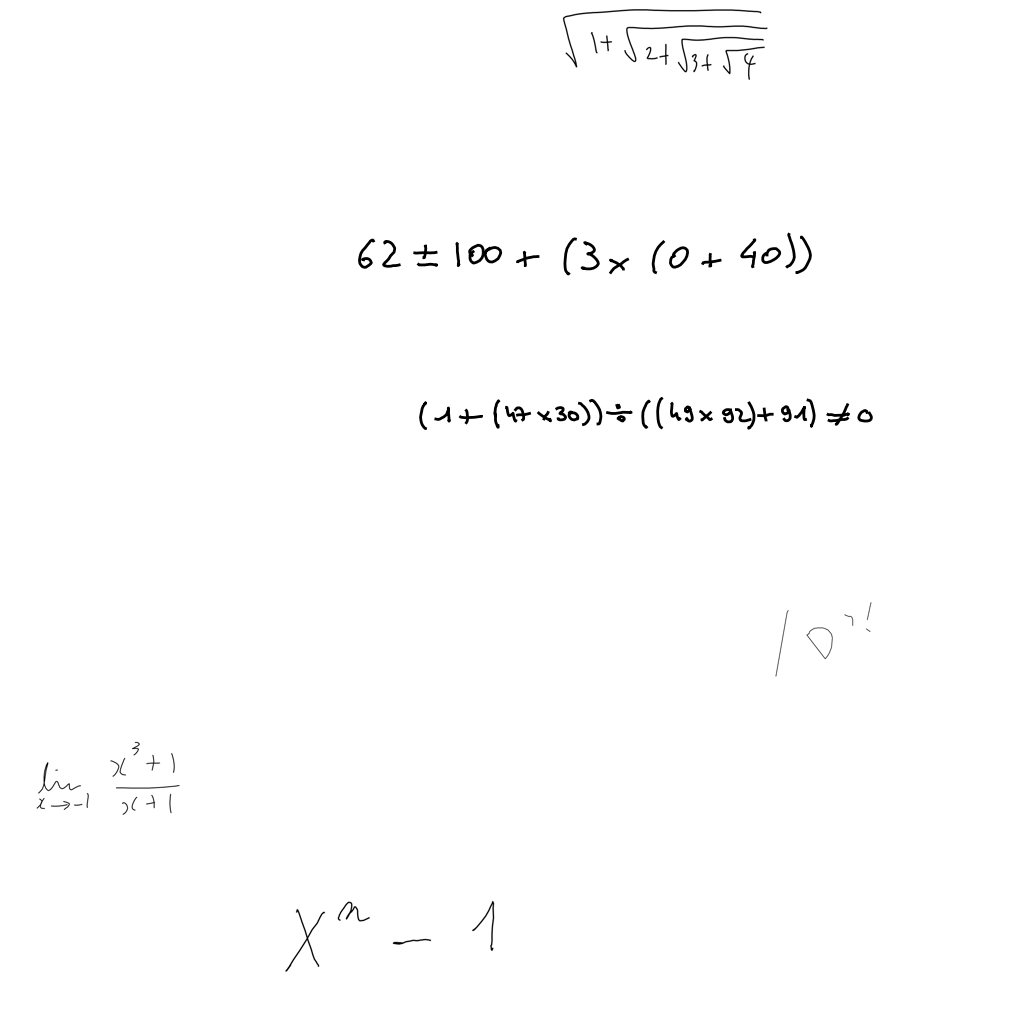 √(1+√(2+√(3+√4)))
62 ± 100 + (3 × (0 + 40))
(1 + (47 × 30)) ÷ ((49 × 92) + 91) ≠ 0
lim_{x→-1} (x^3+1)/(x+1)
X^n - 1